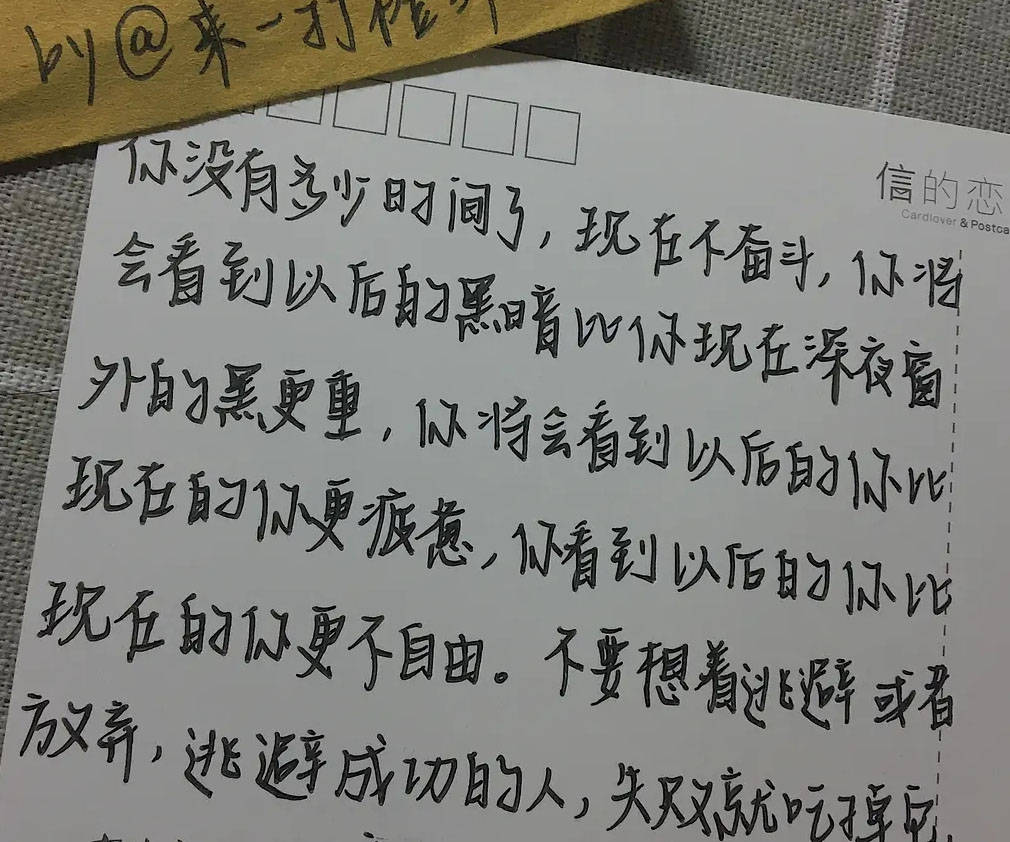 by@来一打橙
信的恋
Cardlover & Postca
你没有多少时间了,现在不奋斗,你将
会看到以后的黑暗比你现在深夜窗
外的黑更重,你将会看到以后的你比
现在的你更疲惫,你看到以后的你比
现在的你更不自由。不要想着逃避或者
放弃,逃避成功的人,失败就吃掉它